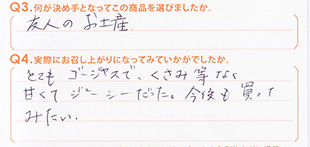 Q3.何が決め手となってこの商品を選びましたか。
友人のお土産
Q4.実際にお召し上がりになってみていかがでしたか。
とてもゴージャスで、くさみ等なく
甘くてジューシーだった。今後も買って
みたい。